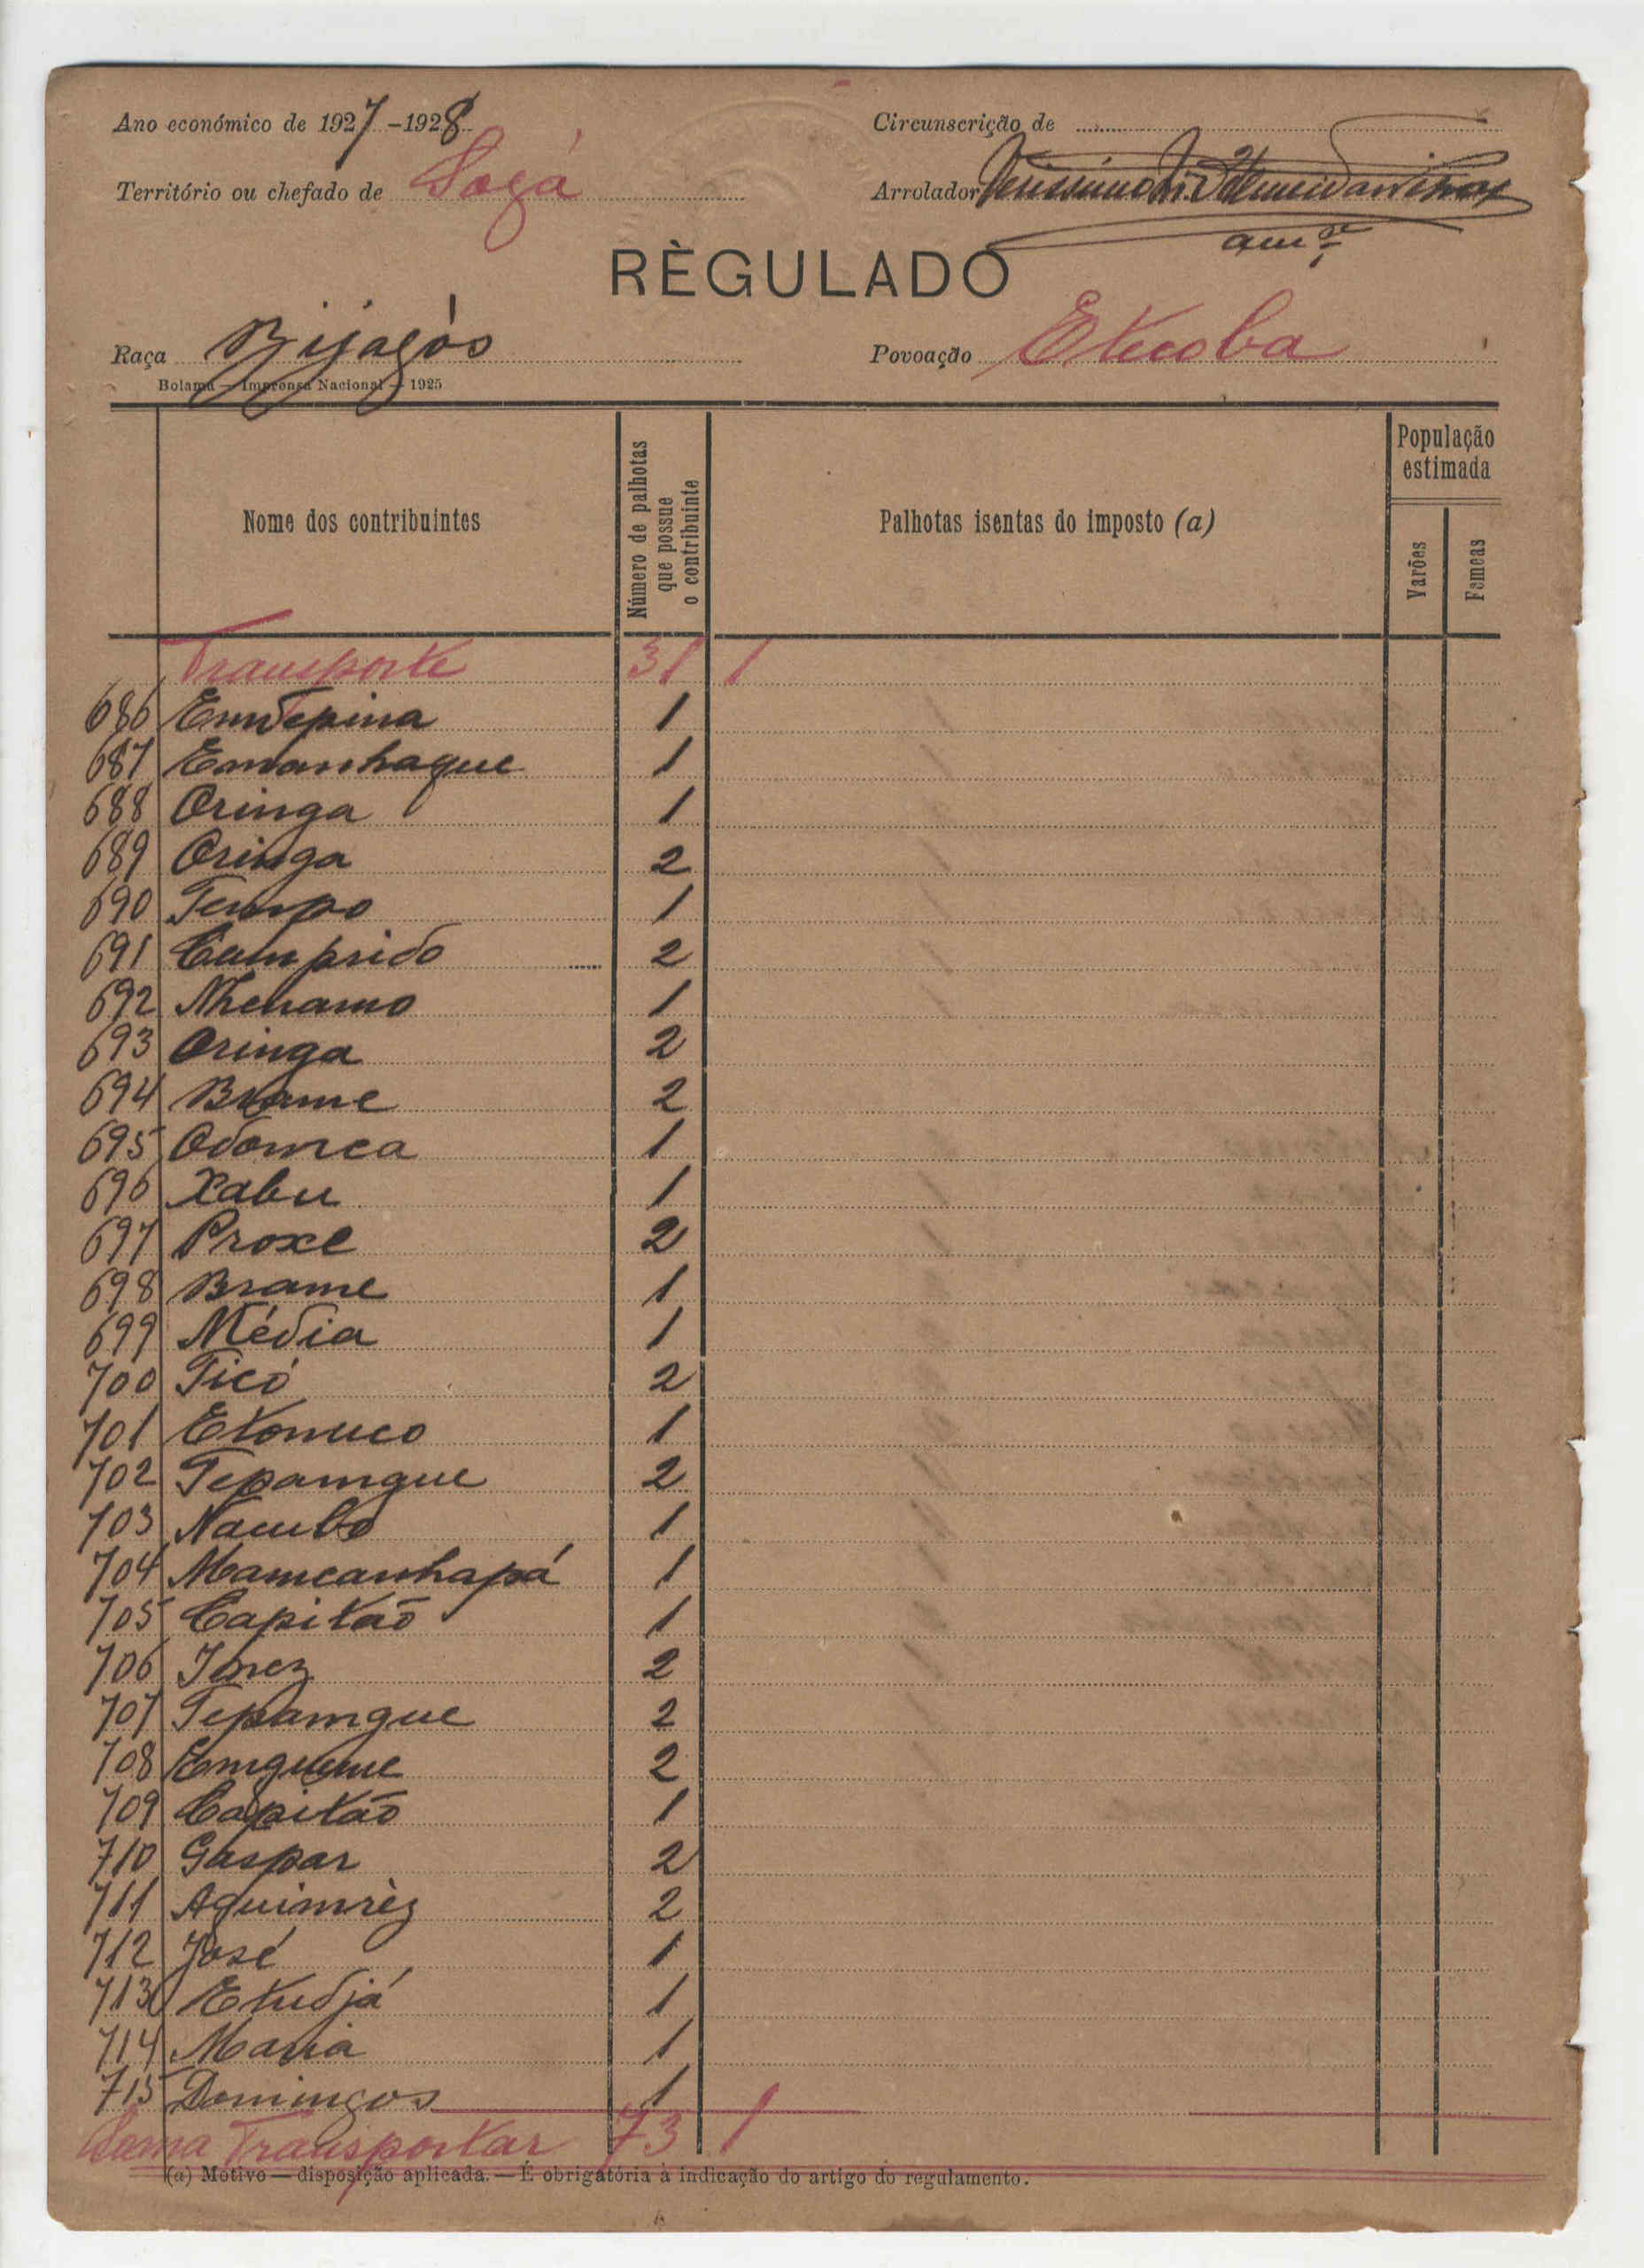 Ano económico de 1927-1928
Circunscrição de
Território ou chefado de Sogá
Arrolador
RÈGULADO
Raça Bijagós
Povoação Etucoba
Bolama — Imprensa Nacional — 1925
Nome dos contribuintes
Número de palhotas que possue o contribuinte
Palhotas isentas do imposto (a)
População estimada
Varões
Femeas
Transporte 31 1
686 Emdepina 1
687 Emanhaque 1
688 Oringa 1
689 Oringa 2
690 Tempo 1
691 Camprido 2
692 Nhenamo 1
693 Oringa 2
694 Brame 2
695 Odomca 1
696 Xabu 1
697 Proxe 2
698 Brame 1
699 Média 1
700 Ticó 2
701 Etonuco 1
702 Tepamgue 2
703 Nambo 1
704 Mamcanhapá 1
705 Capitão 1
706 Inez 2
707 Tepamgue 2
708 Emgueme 2
709 Capitão 1
710 Gaspar 2
711 Aquimrèz 2
712 José 1
713 Etudjá 1
714 Maria 1
715 Domingos 1
Soma Transportar 73 1
(a) Motivo — disposição aplicada. — É obrigatória a indicação do artigo do regulamento.